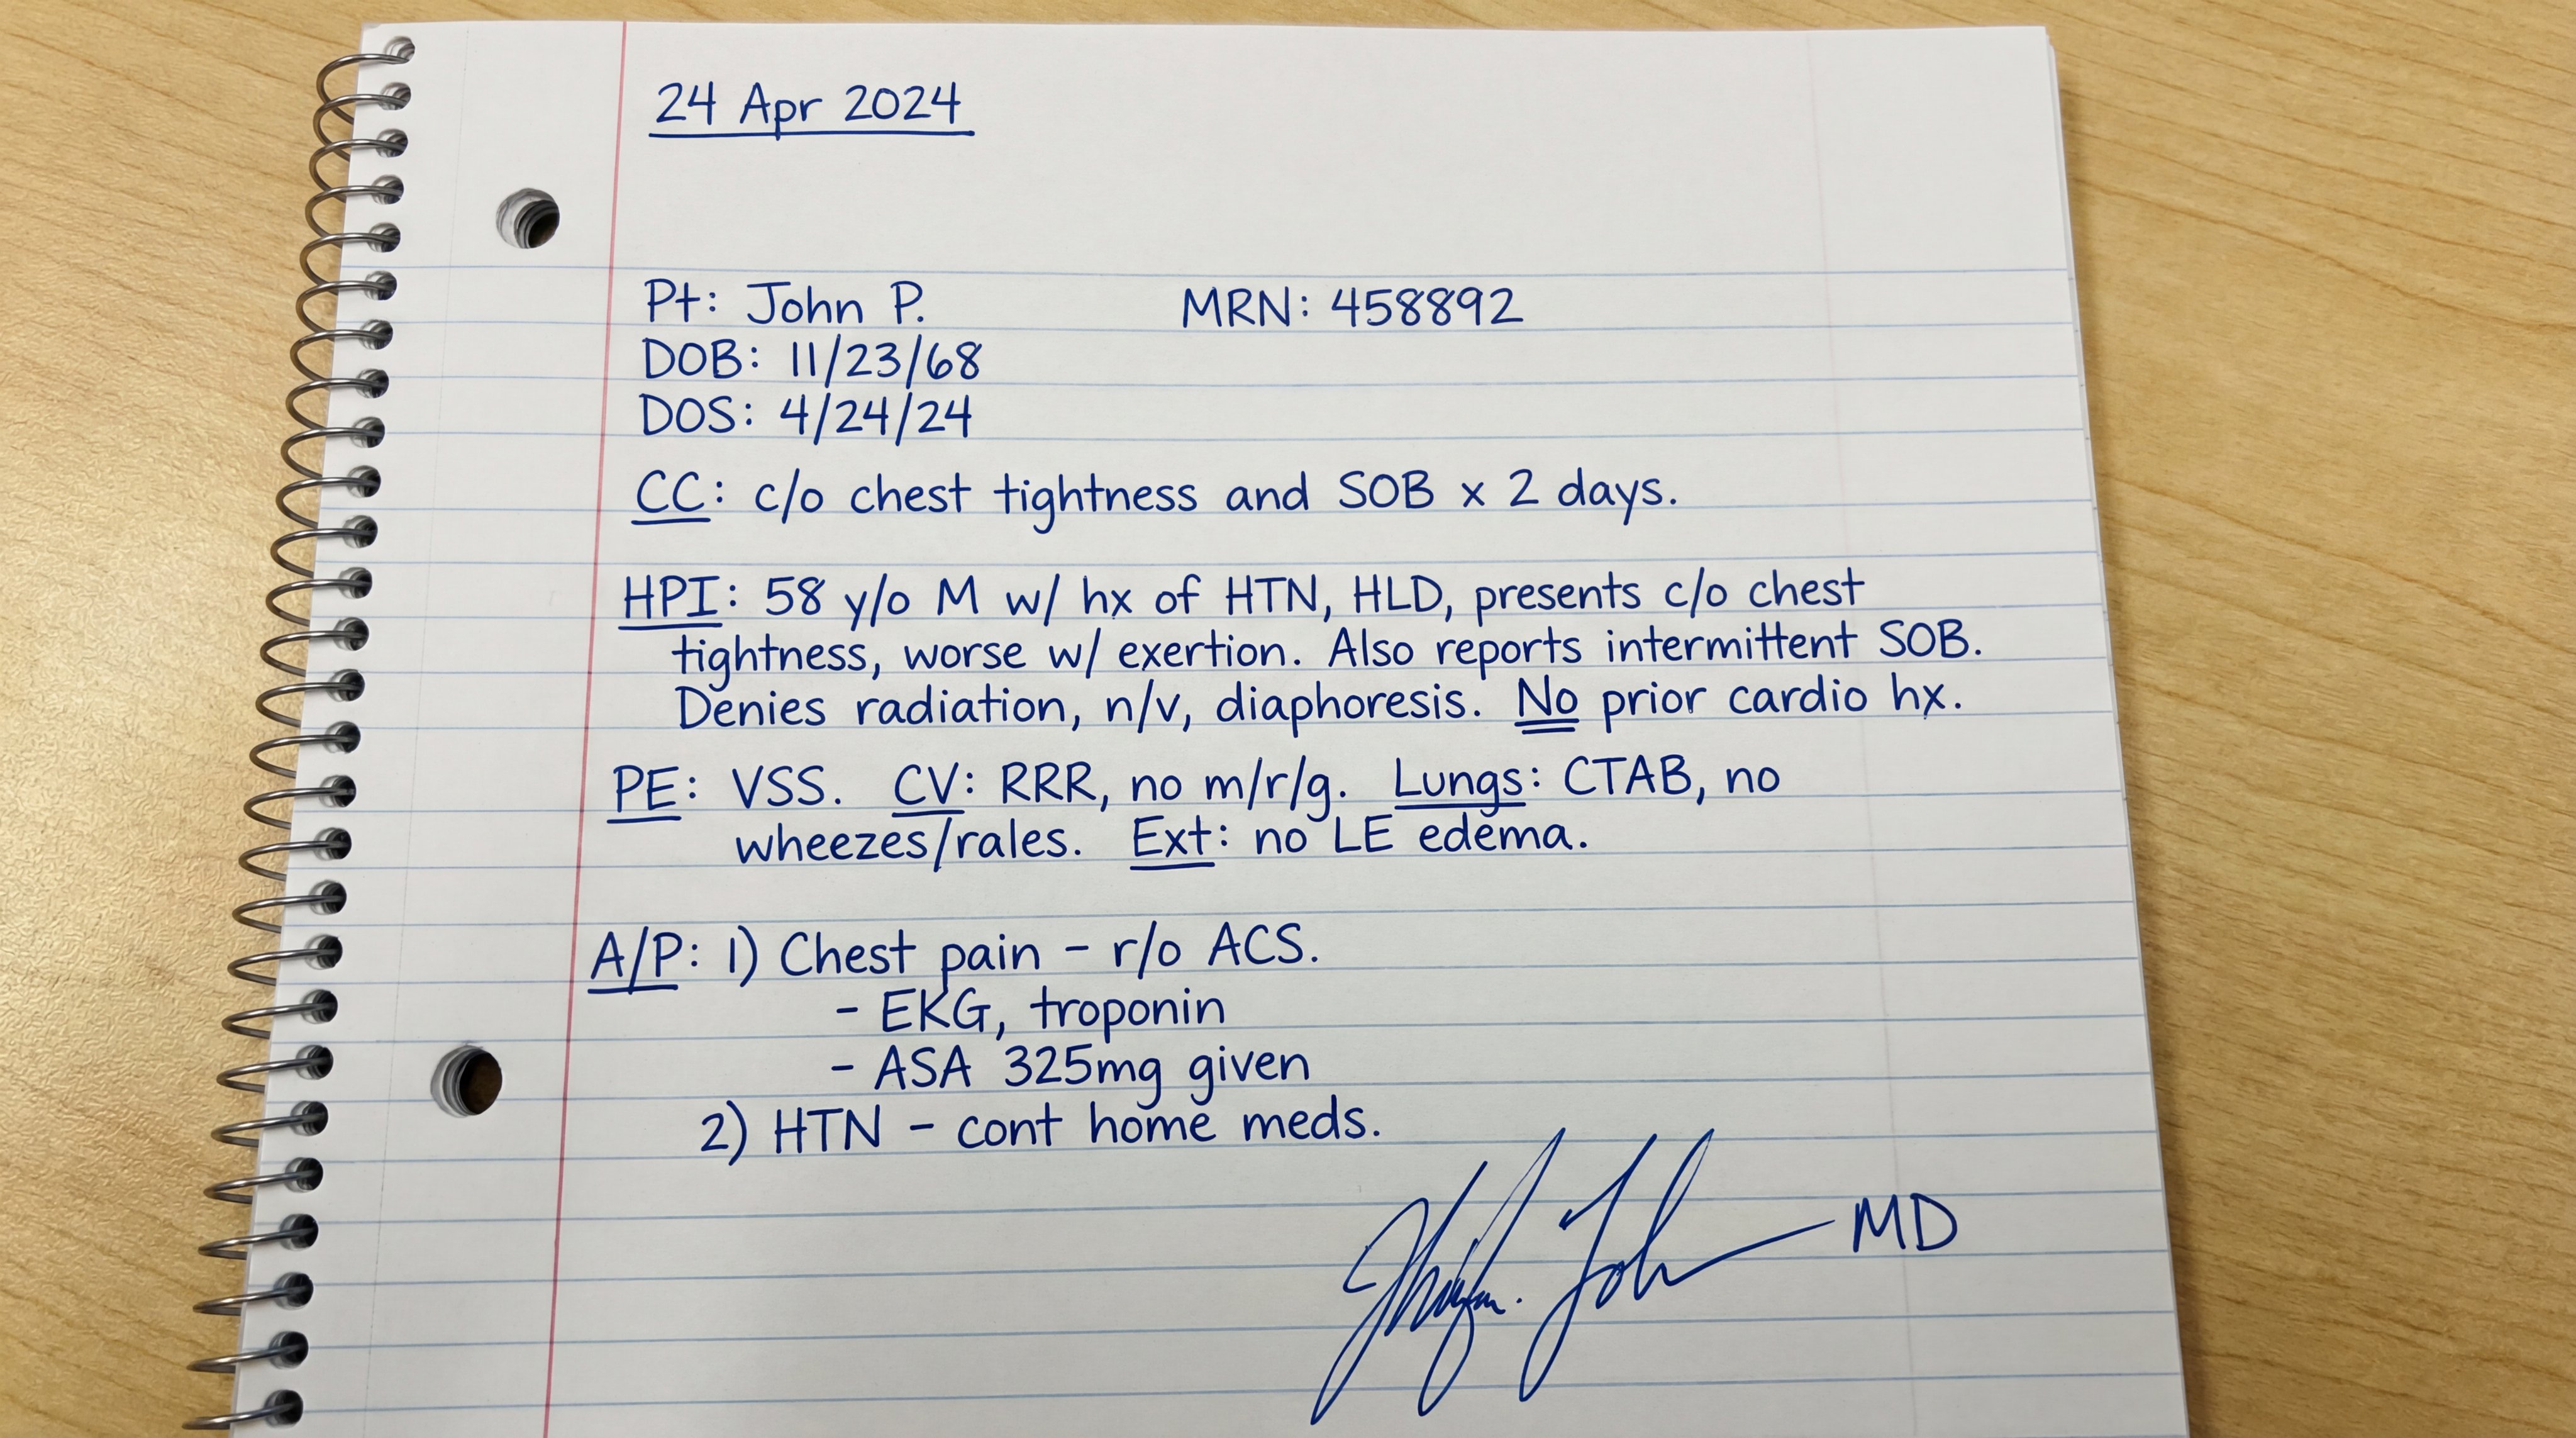 24 Apr 2024
Pt: John P. MRN: 458892
DOB: 11/23/68
DOS: 4/24/24
CC: c/o chest tightness and SOB x 2 days.
HPI: 58 y/o M w/ hx of HTN, HLD, presents c/o chest
tightness, worse w/ exertion. Also reports intermittent SOB.
Denies radiation, n/v, diaphoresis. No prior cardio hx.
PE: VSS. CV: RRR, no m/r/g. Lungs: CTAB, no
wheezes/rales. Ext: no LE edema.
A/P: 1) Chest pain - r/o ACS.
- EKG, troponin
- ASA 325mg given
2) HTN - cont home meds.
MD